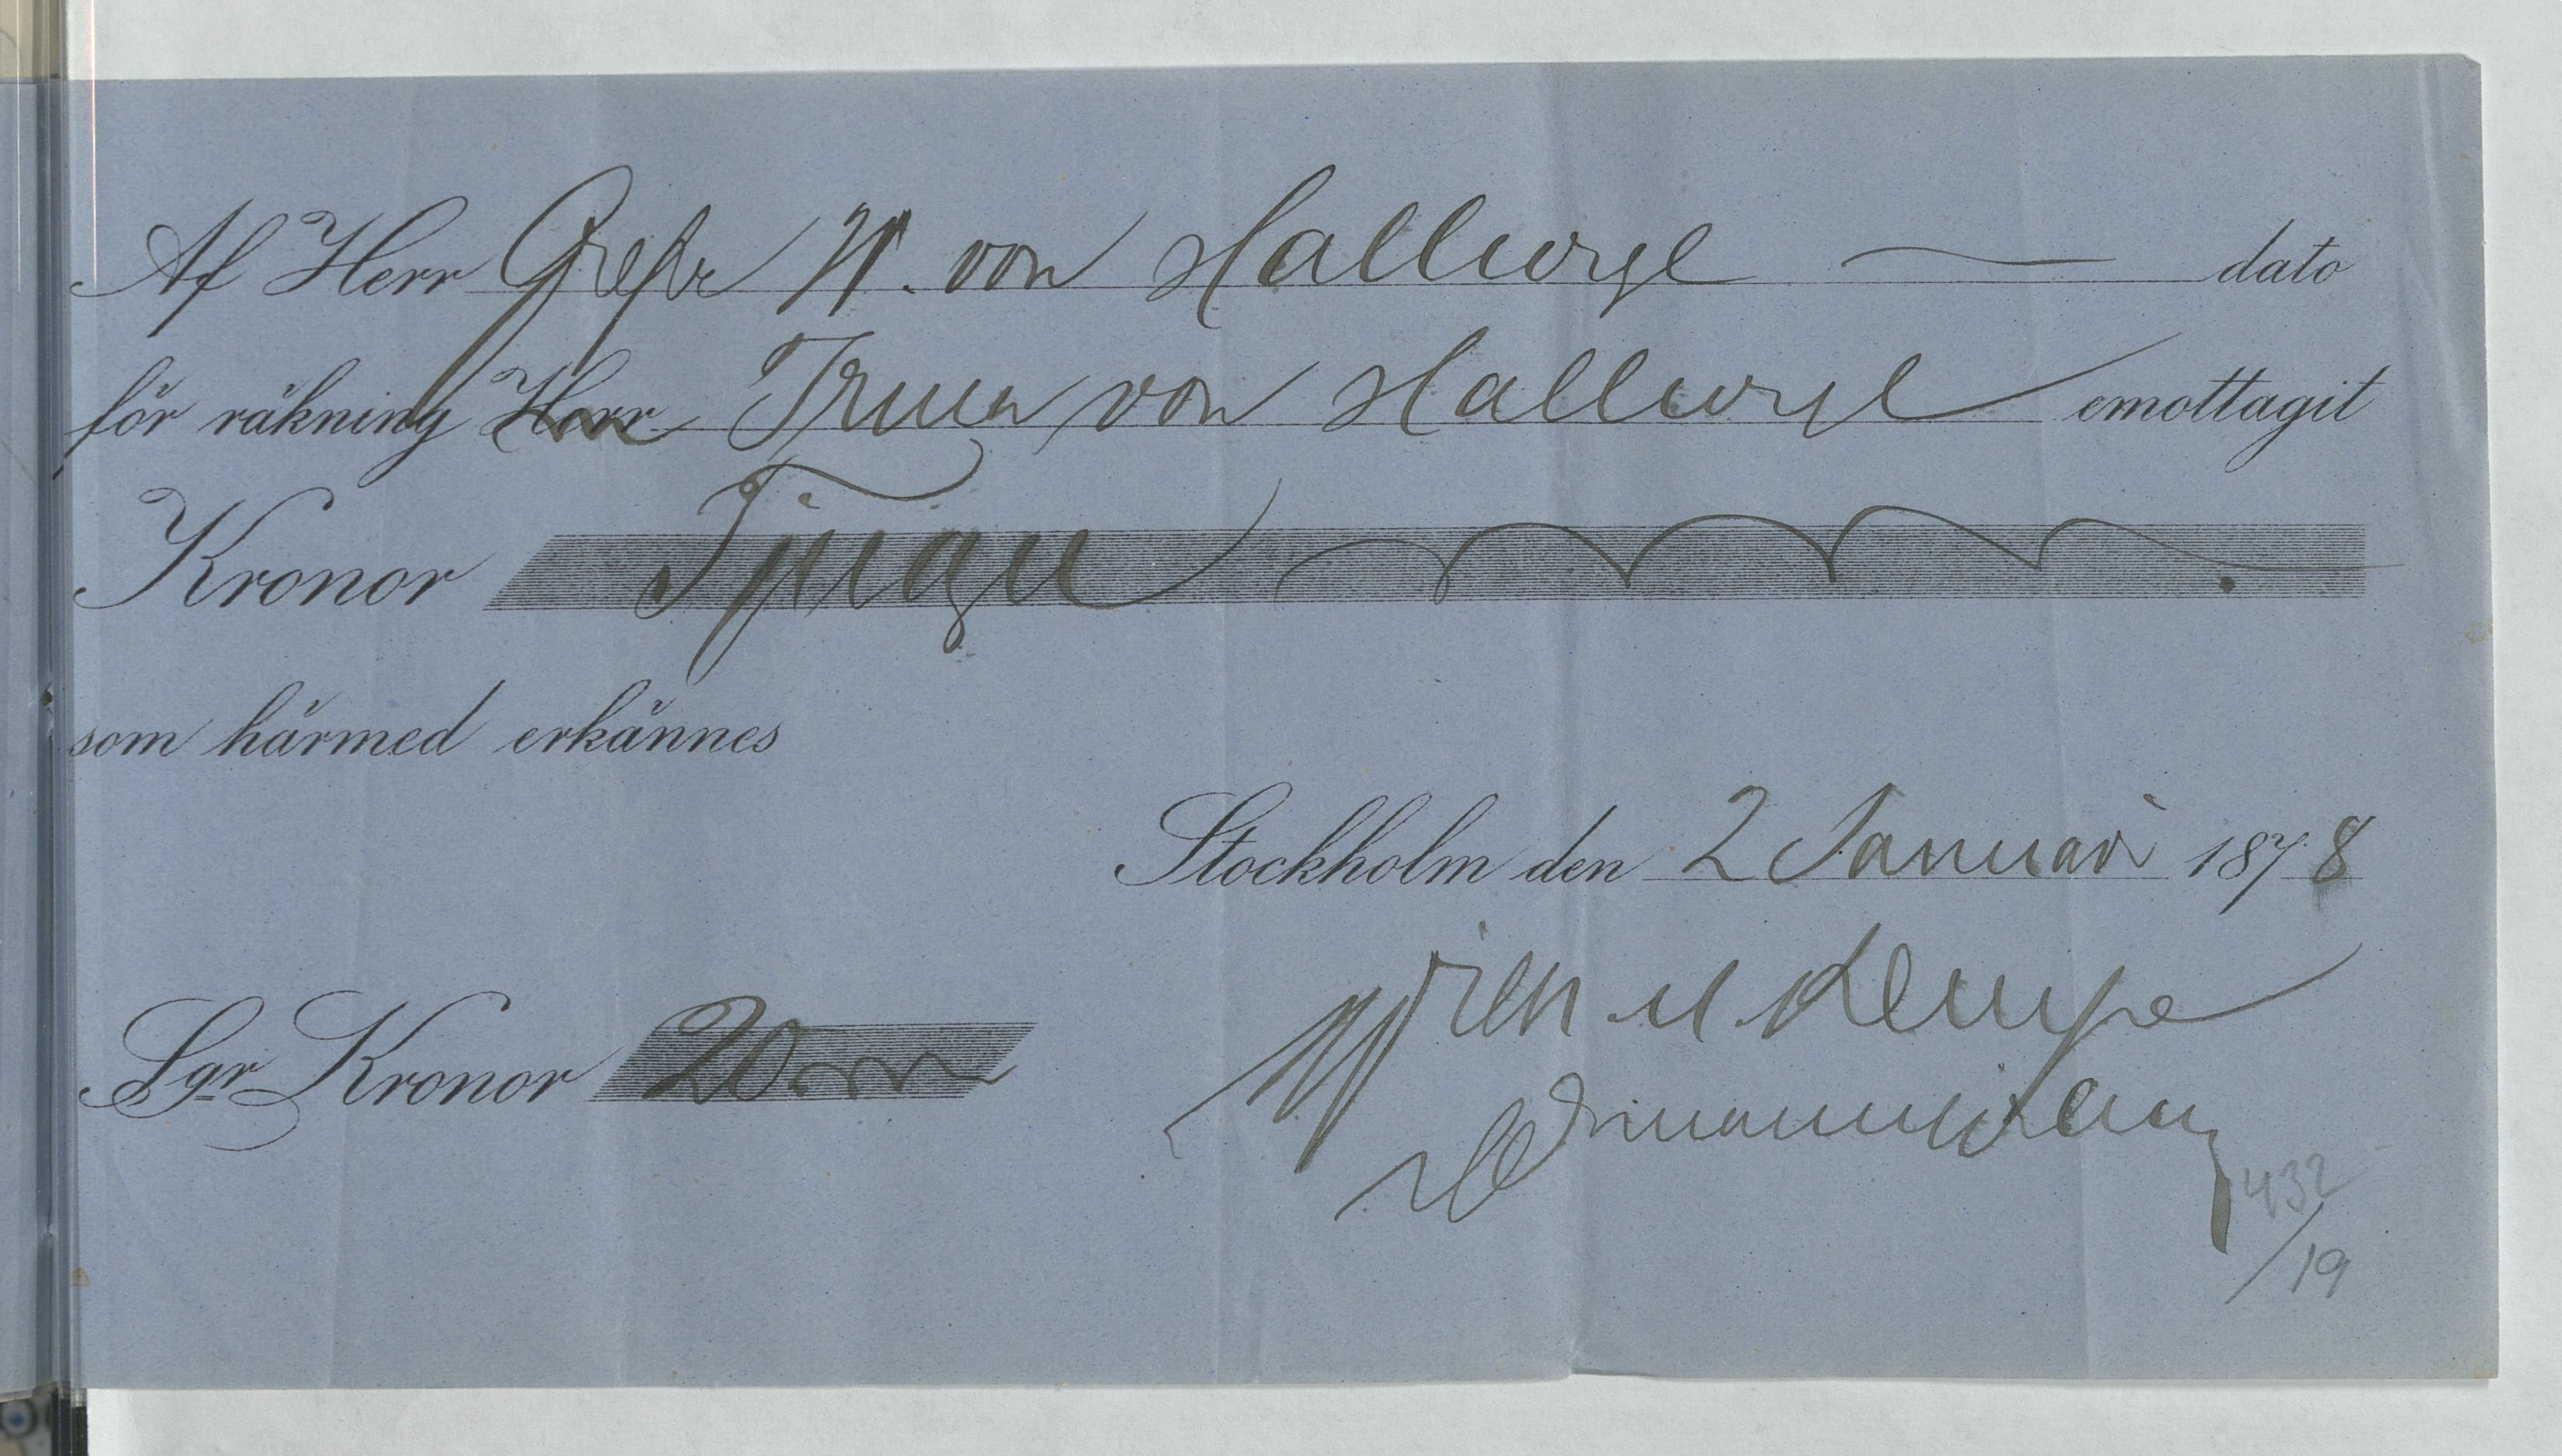 Af Herr Grefve W. von Hallwyl dato
för räkning Herr Irma von Hallwyl emottagit
Kronor Tjugu
som härmed erkännes
Stockholm den 2 Januari 1878
Sgr Kronor 20
Wilh. H. Kempe
432
/19